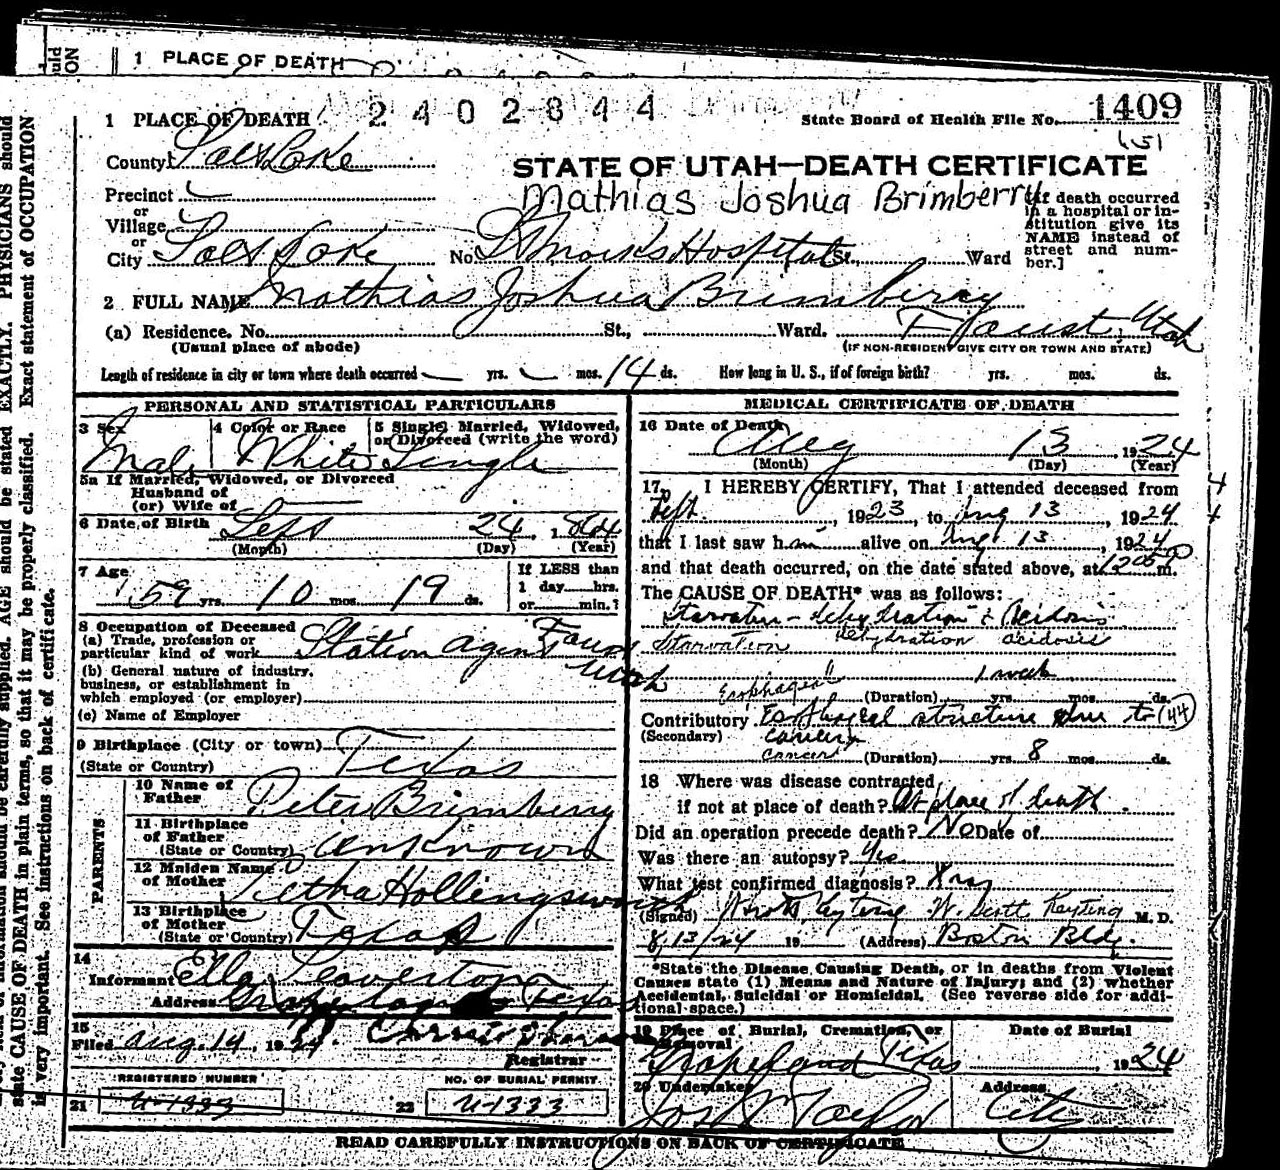 1 PLACE OF DEATH
1 PLACE OF DEATH 2402844 State Board of Health File No. 1409
County Salt Lake
STATE OF UTAH—DEATH CERTIFICATE
Precinct
Mathias Joshua Brimberry
or
Village
or
City Salt Lake No. St Marks Hospital St., Ward
[If death occurred
in a hospital or in-
stitution give its
NAME instead of
street and num-
ber.]
2 FULL NAME Mathias Joshua Brimberry
(a) Residence. No. St., Ward. Faust, Utah
(Usual place of abode) (IF NON-RESIDENT GIVE CITY OR TOWN AND STATE)
Length of residence in city or town where death occurred — yrs. — mos. 14 ds. How long in U. S., if of foreign birth? yrs. mos. ds.
PERSONAL AND STATISTICAL PARTICULARS
3 Sex 4 Color or Race 5 Single, Married, Widowed,
or Divorced (write the word)
Male White Single
5a If Married, Widowed, or Divorced
Husband of
(or) Wife of
6 Date of Birth Sept 24, 1864
(Month) (Day) (Year)
7 Age 59 yrs. 10 mos. 19 ds.
If LESS than
1 day hrs.
or min.?
8 Occupation of Deceased
(a) Trade, profession or
particular kind of work Station agent Faust
Utah
(b) General nature of industry,
business, or establishment in
which employed (or employer)
(c) Name of Employer
9 Birthplace (City or town)
(State or Country) Texas
PARENTS
10 Name of
Father Peter Brimberry
11 Birthplace
of Father
(State or Country) Unknown
12 Maiden Name
of Mother Hollingsworth
13 Birthplace
of Mother
(State or Country) Texas
14
Informant Ella Leaverton
Address Grapeland Texas
15
Filed Aug. 14, 1924.
Registrar
REGISTERED NUMBER NO. OF BURIAL PERMIT
21 U-1333 22 U-1333
MEDICAL CERTIFICATE OF DEATH
16 Date of Death
Aug 13, 1924
(Month) (Day) (Year)
17 I HEREBY CERTIFY, That I attended deceased from
Sept., 1923, to Aug 13, 1924
that I last saw him alive on Aug 13, 1924
and that death occurred, on the date stated above, at 1205 P m.
The CAUSE OF DEATH* was as follows:
Starvation - dehydration & Acidosis
Starvation dehydration acidosis
1 week
Esophageal (Duration) yrs. mos. ds.
Contributory Esophageal stricture due to (44)
(Secondary) cancer
cancer (Duration) yrs. 8 mos. ds.
18 Where was disease contracted
if not at place of death? At place of death.
Did an operation precede death? No Date of
Was there an autopsy? Yes
What test confirmed diagnosis? Xray
(Signed) W Scott Keyting W. Scott Keyting M. D.
8/13/24 19 (Address) Boston Bldg.
*State the Disease Causing Death, or in deaths from Violent
Causes state (1) Means and Nature of Injury; and (2) whether
Accidental, Suicidal or Homicidal. (See reverse side for addi-
tional space.)
19 Place of Burial, Cremation, or
Removal Date of Burial
Grapeland Texas 1924
20 Undertaker Address
Jos Wm Taylor City
READ CAREFULLY INSTRUCTIONS ON BACK OF CERTIFICATE
information should be carefully supplied. AGE should be stated EXACTLY. PHYSICIANS should
state CAUSE OF DEATH in plain terms, so that it may be properly classified. Exact statement of OCCUPATION
is very important. See instructions on back of certificate.